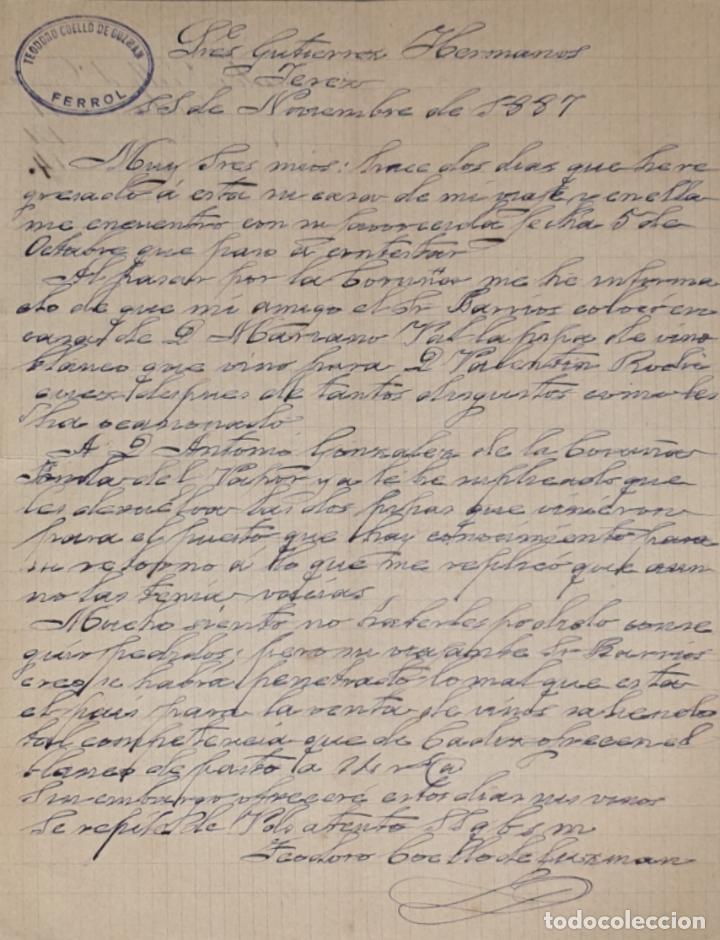 TEODORO COELLO DE GUZMAN
FERROL
Sres Gutierrez Hermanos
Jerez
11 de Noviembre de 1887
Muy Sres mios: hace dos dias que he re
gresado á esta su casa de mi viaje y en ella
me encuentro con su favorecida fecha 5 de
Octubre que paso á contestar
Al pasar por la Coruña me he informa
do de que mi amigo el Sr Barrios colocó en
casa de D Mariano la pipa de vino
blanco que vino para D Valentin Rodri
guez despues de tantos disgustos como les
ha ocasionado
A D Antonio Gonzalez de la Coruña
Fonda del ya le he suplicado que
les devuelva las dos pipas que vinieron
para el puesto que hay conocimiento para
su retorno á lo que me replicó que aun
no las tenia vacias
Mucho siento no haberles podido conse
guir pedidos; pero su viajante Sr Barrios
creo se habrá penetrado lo mal que esta
el pais para la venta de vinos habiendo
tal competencia que de Cadiz ofrecen el
blanco de pasto la @
Sin embargo ofreceré estos dias sus vinos
Se repite de Vds atento SS q b s m
Teodoro Coello de Guzman
todocoleccion